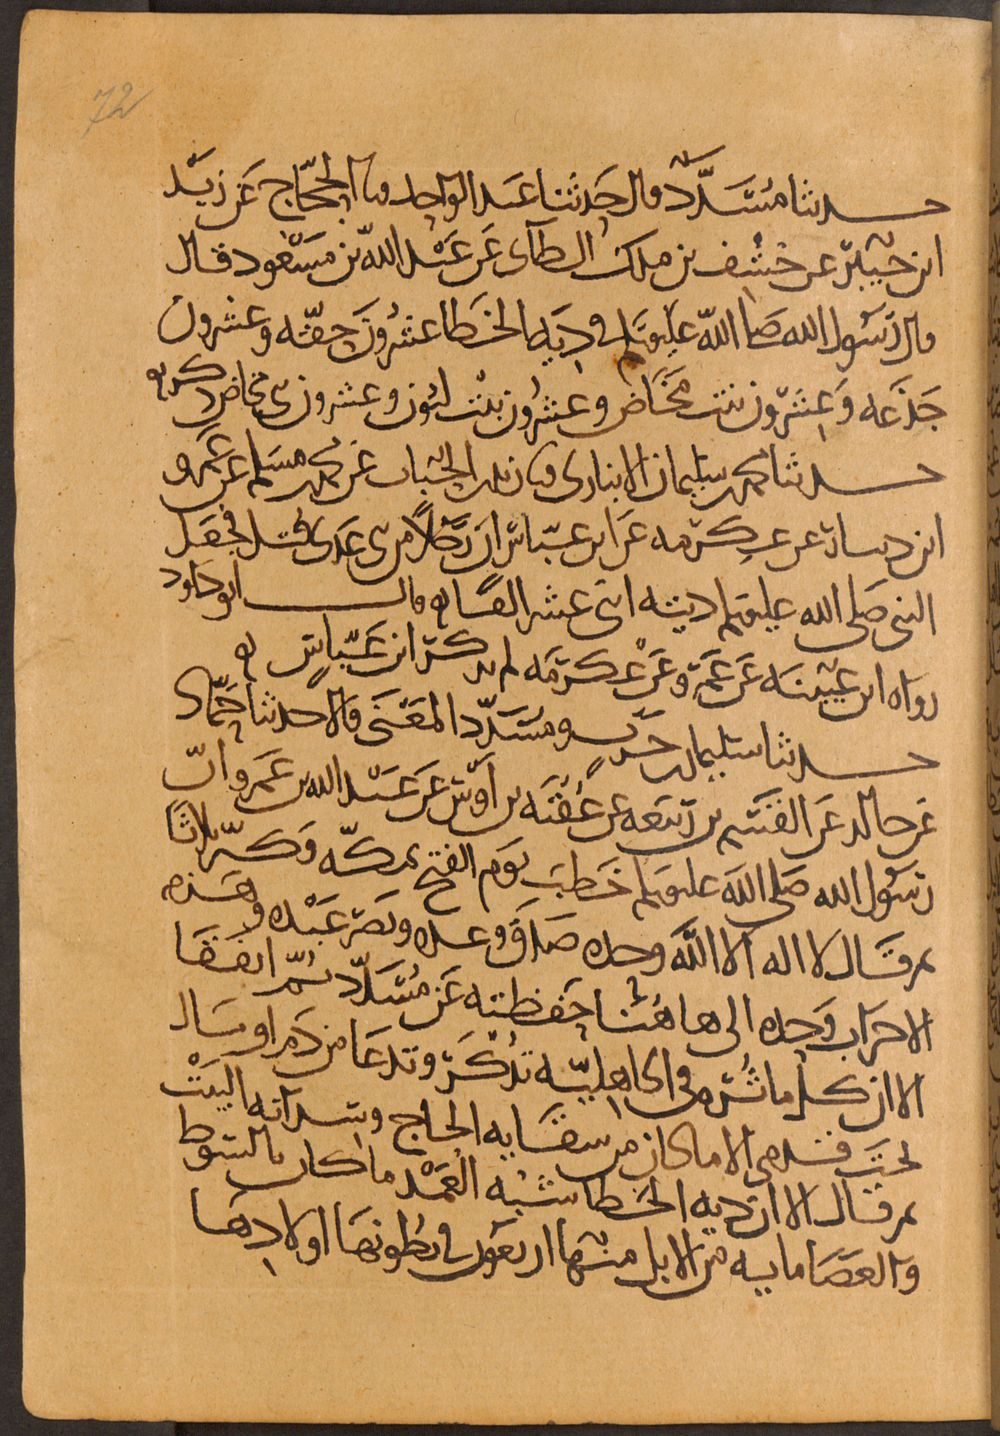 72
حدثنا مسدد قال حدثنا عبد الواحد نا الحجاج عن زيد
ابن جبير عن خشف بن ملك الطائى عن عبد الله بن مسعود قال
قال رسول الله صلى الله عليه وسلم فى دية الخطا عشرون حقة وعشرون
جذعه وعشرون بنت مخاض وعشرون بنت لبون وعشرون بنى مخاض ذكر
حدثنا محمد بن سليمان الانبارى نا زيد بن الحباب عن محمد بن مسلم عن عمرو
ابن دينار عن عكرمه عن ابن عباس ان رجلا من بنى عدى قتل فجعل
النبى صلى الله عليه وسلم ديته اثنى عشر الفا قال ابو داود
رواه ابن عيينه عن عمرو عن عكرمه لم يذكر ابن عباس
حدثنا سليمان بن حرب ومسدد المعنى قالا حدثنا حماد
عن خالد عن القسم بن ربيعه عن عقبه بن اوس عن عبد الله بن عمرو ان
رسول الله صلى الله عليه وسلم خطب يوم الفتح بمكه وكبر ثلاثا
ثم قال لا اله الا الله وحده صدق وعده ونصر عبده وهزم
الاحزاب وحده الى هاهنا حفظته عن مسدد ثم اتفقا
الا ان كل ماثرة فى الجاهليه تذكر وتدعا من دم او مال
تحت قدمى الا ما كان من سقايه الحاج وسدانه البيت
ثم قال الا ان دية الخطا شبه العمد ما كان بالسوط
والعصا مايه من الابل منها اربعون فى بطونها اولادها